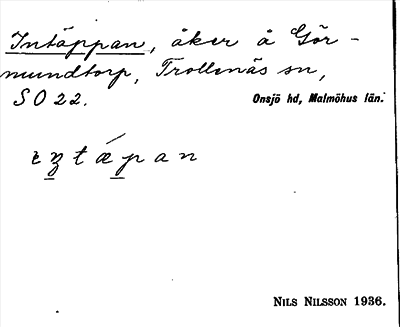 Intäppan, åker å Gör-
mundtorp, Trollenäs sn,
SO 22. Onsjö hd, Malmöhus län.
NILS NILSSON 1936.